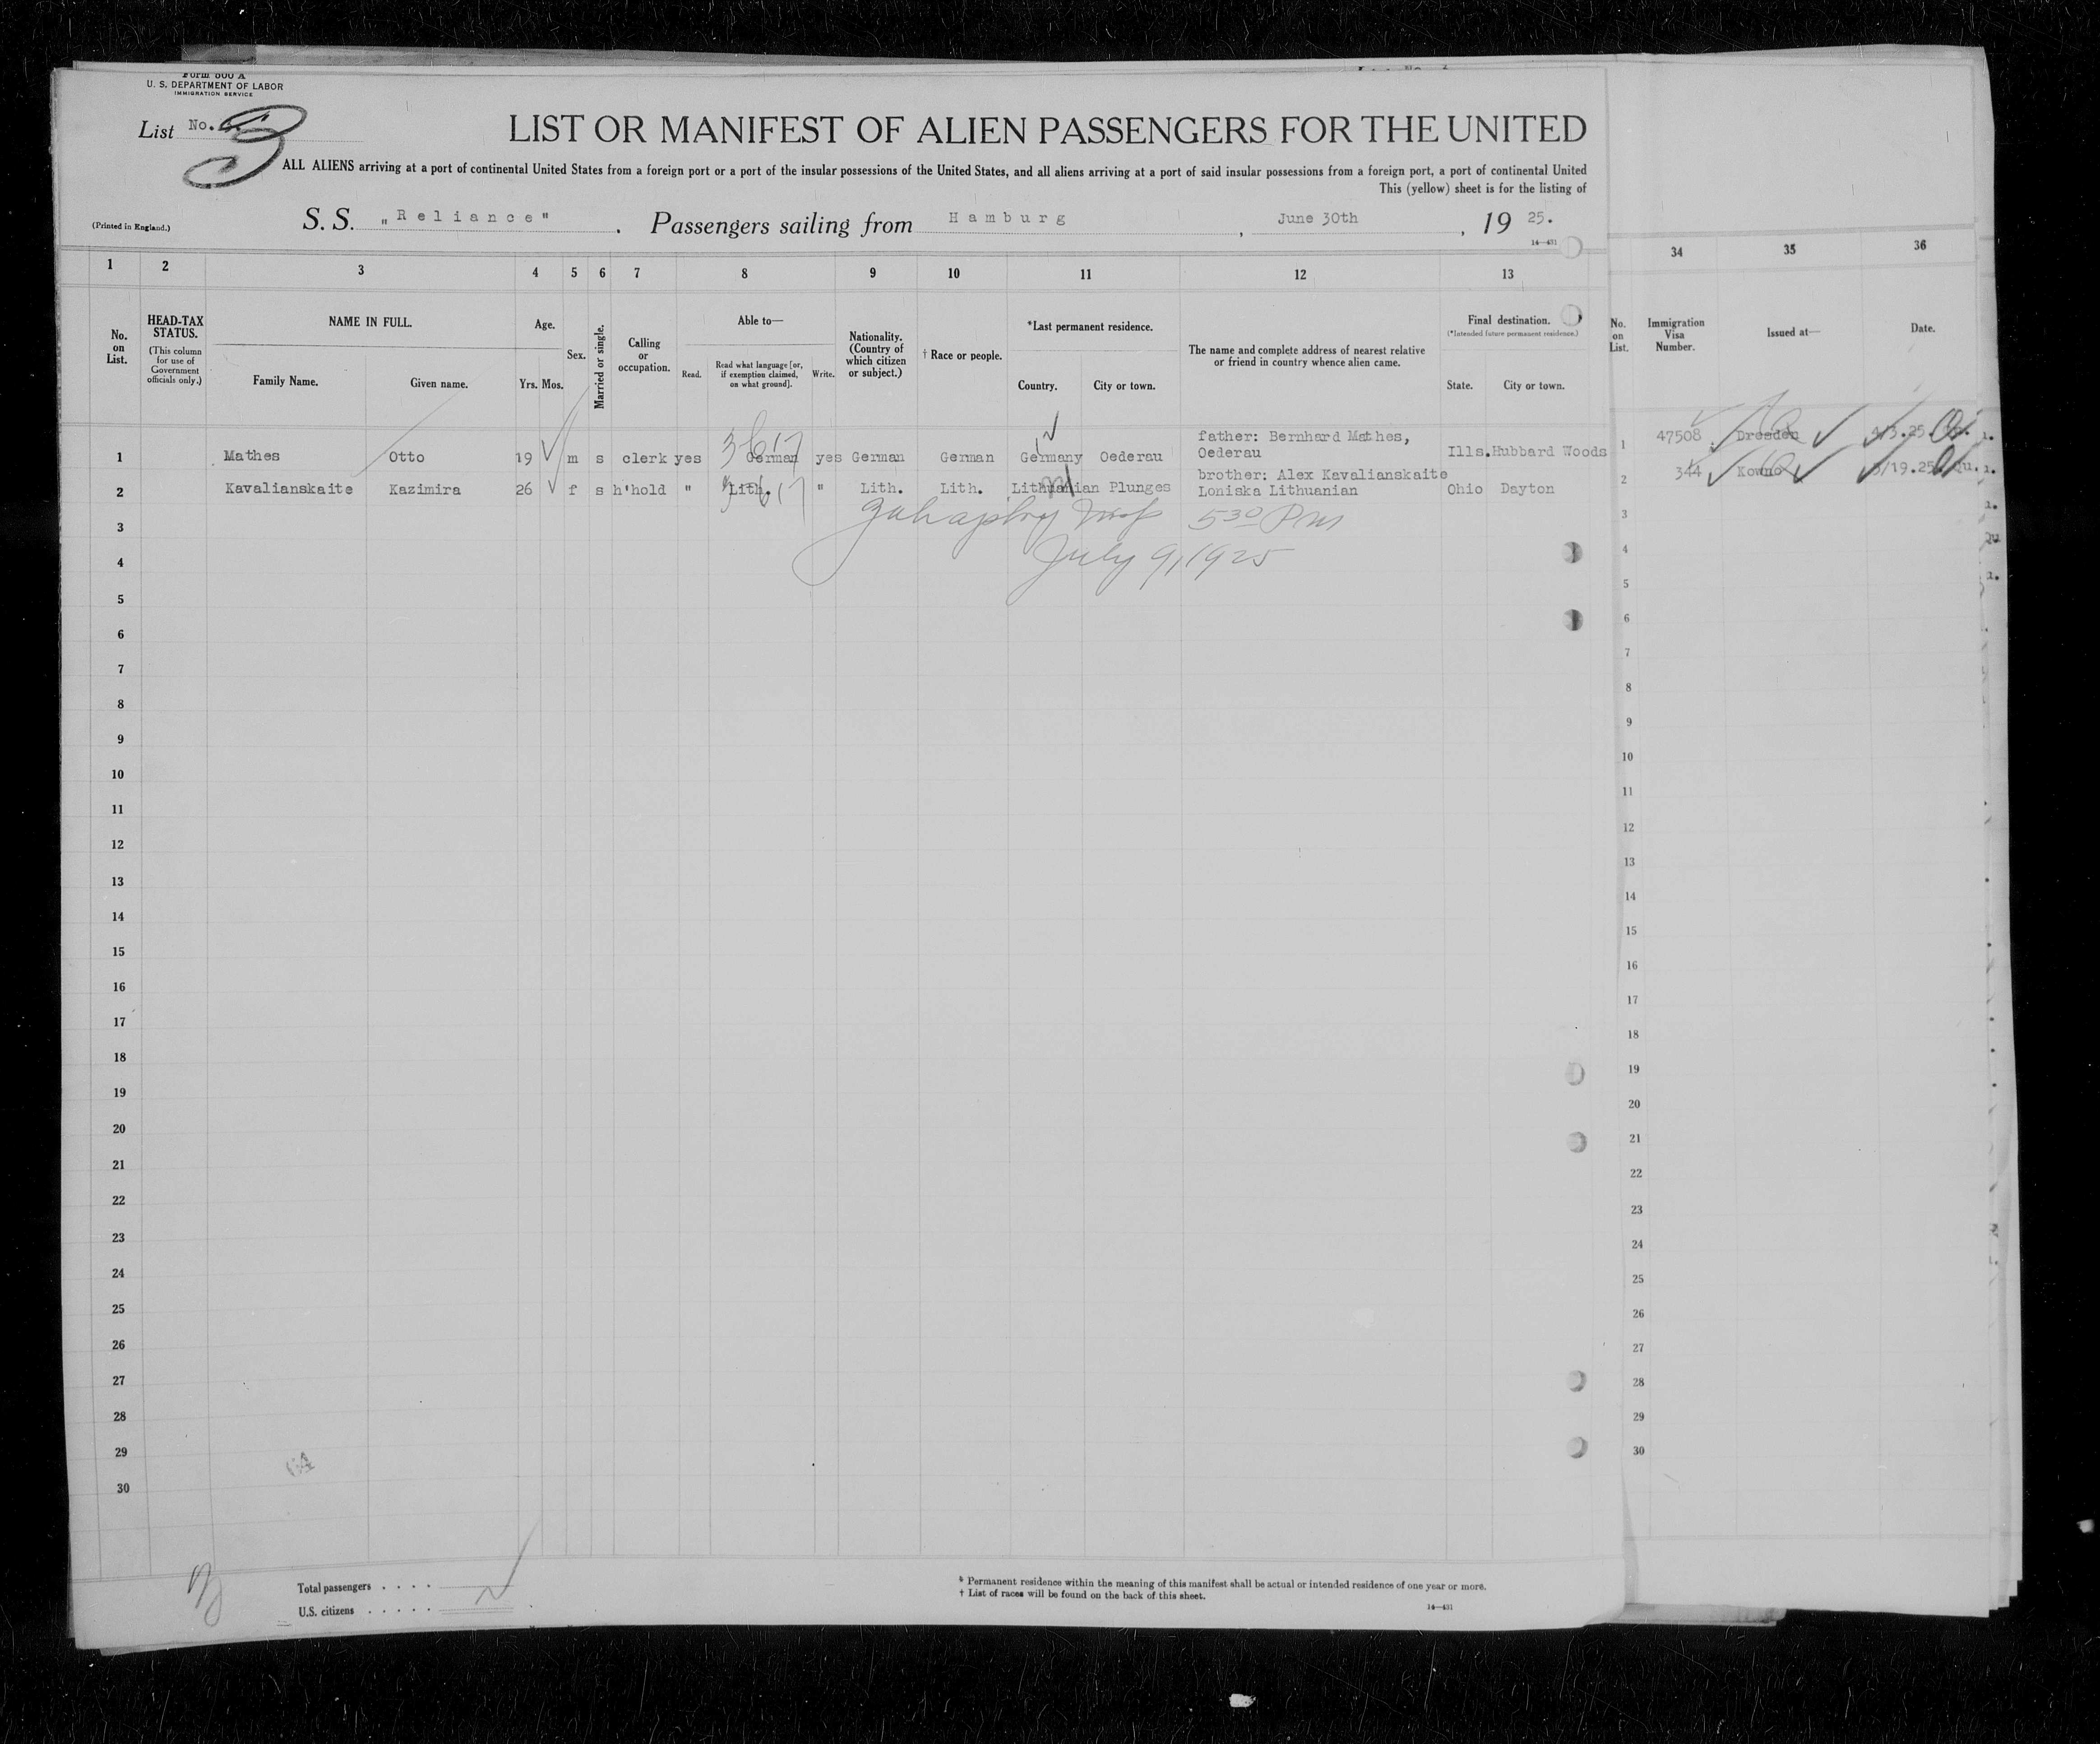 Form 600 A
U. S. DEPARTMENT OF LABOR
IMMIGRATION SERVICE
List No. 3
LIST OR MANIFEST OF ALIEN PASSENGERS FOR THE UNITED
ALL ALIENS arriving at a port of continental United States from a foreign port or a port of the insular possessions of the United States, and all aliens arriving at a port of said insular possessions from a foreign port, a port of continental United
This (yellow) sheet is for the listing of
(Printed in England.)
S. S. „Reliance". Passengers sailing from Hamburg, June 30th, 1925.
14—431
1 2 3 4 5 6 7 8 9 10 11 12 13 34 35 36
No. on List.
HEAD-TAX STATUS.
(This column for use of Government officials only.)
NAME IN FULL.
Family Name. Given name.
Age.
Yrs. Mos.
Sex.
Married or single.
Calling or occupation.
Able to—
Read. Read what language [or, if exemption claimed, on what ground]. Write.
Nationality. (Country of which citizen or subject.)
† Race or people.
*Last permanent residence.
Country. City or town.
The name and complete address of nearest relative or friend in country whence alien came.
Final destination.
(*Intended future permanent residence.)
State. City or town.
No. on List.
Immigration Visa Number.
Issued at—
Date.
1 Mathes Otto 19 m s clerk yes German yes German German Germany Oederau father: Bernhard Mathes, Oederau Ills. Hubbard Woods 1 47508 Dresden
2 Kavalianskaite Kazimira 26 f s h'hold " Lith. " Lith. Lith. Lithuanian Plunges brother: Alex Kavalianskaite Loniska Lithuanian Ohio Dayton 2 344 Kowno
3 530 PM 3
4 July 9, 1925 4
5 5
6 6
7 7
8 8
9 9
10 10
11 11
12 12
13 13
14 14
15 15
16 16
17 17
18 18
19 19
20 20
21 21
22 22
23 23
24 24
25 25
26 26
27 27
28 28
29 29
30 30
Total passengers . . . .
U.S. citizens . . . . .
* Permanent residence within the meaning of this manifest shall be actual or intended residence of one year or more.
† List of races will be found on the back of this sheet.
14—431